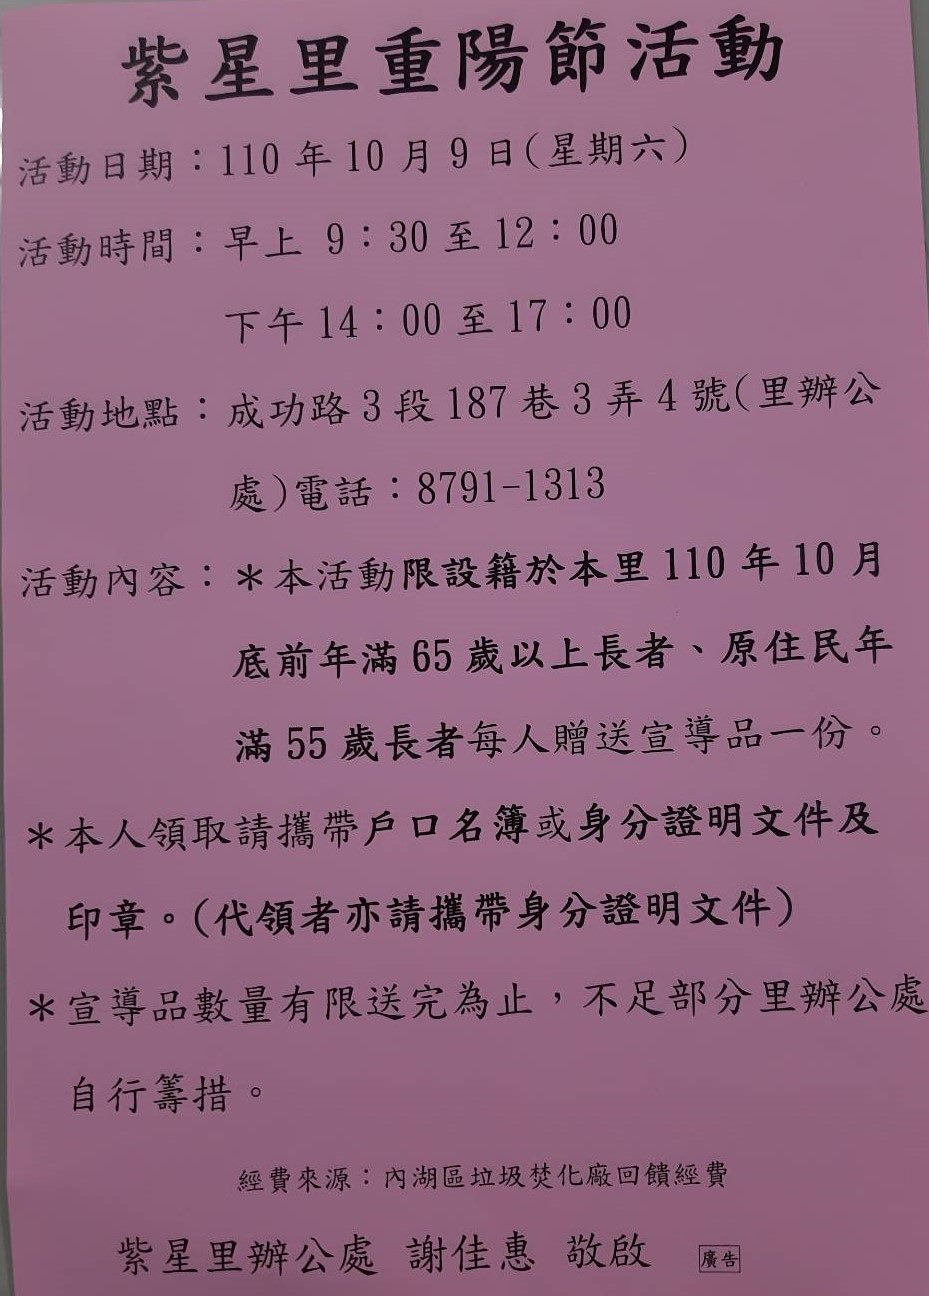 紫星里重陽節活動
活動日期：110 年 10 月 9 日(星期六)
活動時間：早上 9：30 至 12：00
下午 14：00 至 17：00
活動地點：成功路 3 段 187 巷 3 弄 4 號(里辦公
處)電話：8791-1313
活動內容：＊本活動限設籍於本里 110 年 10 月
底前年滿 65 歲以上長者、原住民年
滿 55 歲長者每人贈送宣導品一份。
＊本人領取請攜帶戶口名簿或身分證明文件及
印章。(代領者亦請攜帶身分證明文件)
＊宣導品數量有限送完為止，不足部分里辦公處
自行籌措。
經費來源：內湖區垃圾焚化廠回饋經費
紫星里辦公處 謝佳惠 敬啟 廣告